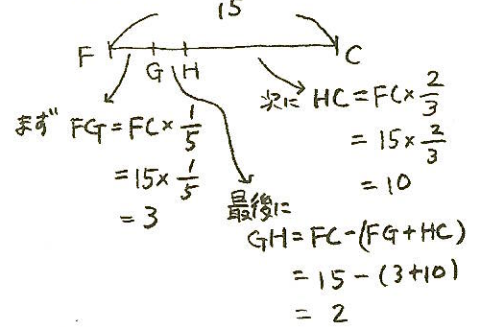 15
F G H C
まず FG=FC×1/5
=15×1/5
=3
次に HC=FC×2/3
=15×2/3
=10
最後に
GH=FC-(FG+HC)
=15-(3+10)
=2